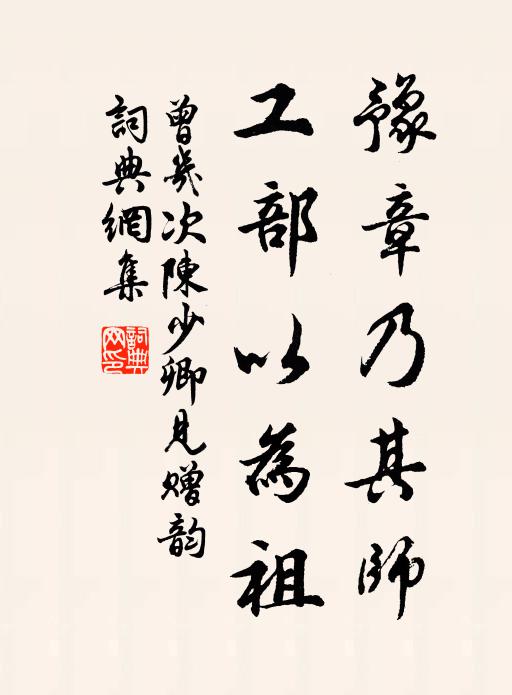 豫章乃其師
工部以為祖
曾幾次陳少卿見贈韵
詞典網集
詞典網印